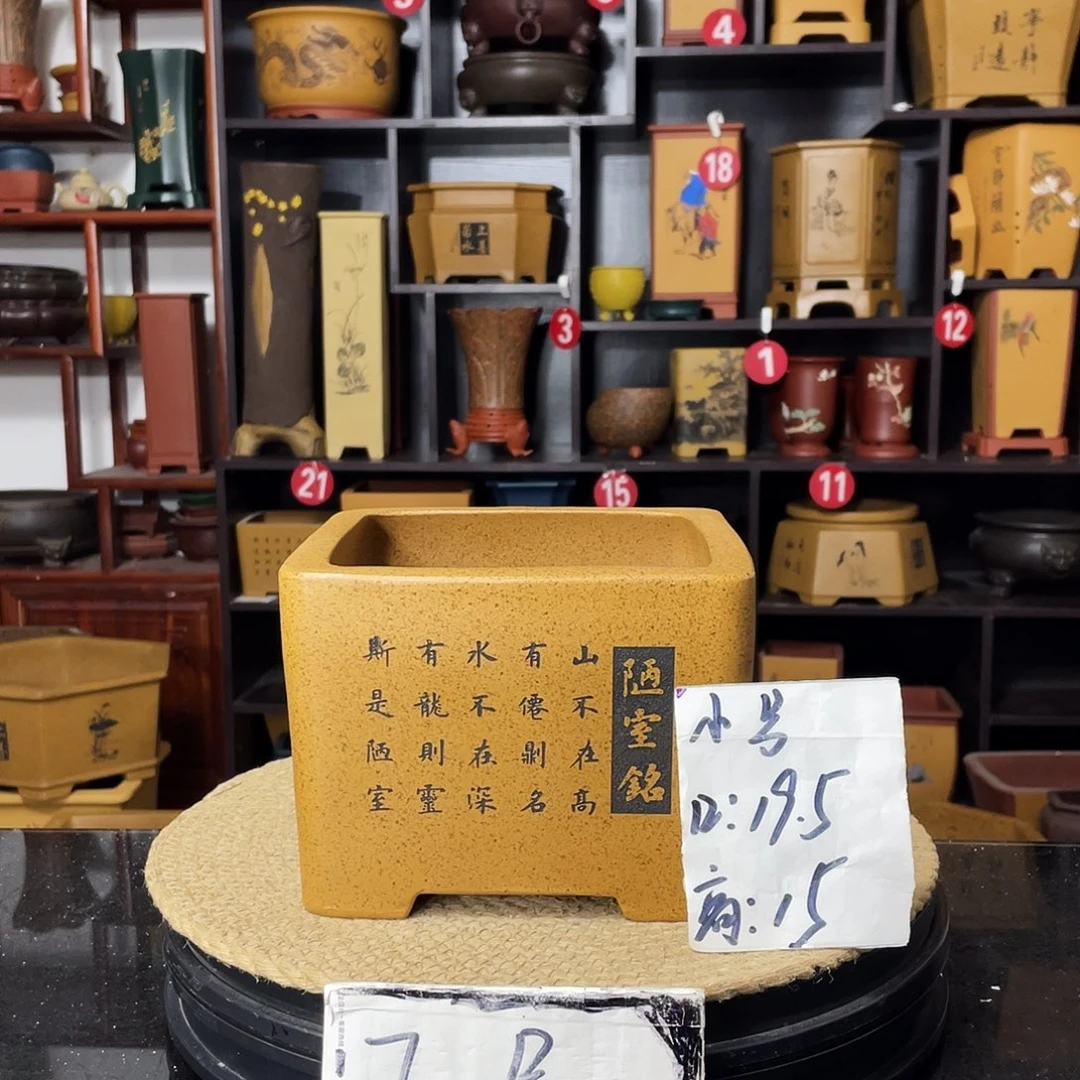 陋室銘
山不在高
有僊則名
水不在深
有龍則靈
斯是陋室
小号
口:19.5
高:15
4
18
3
1
12
21
15
11